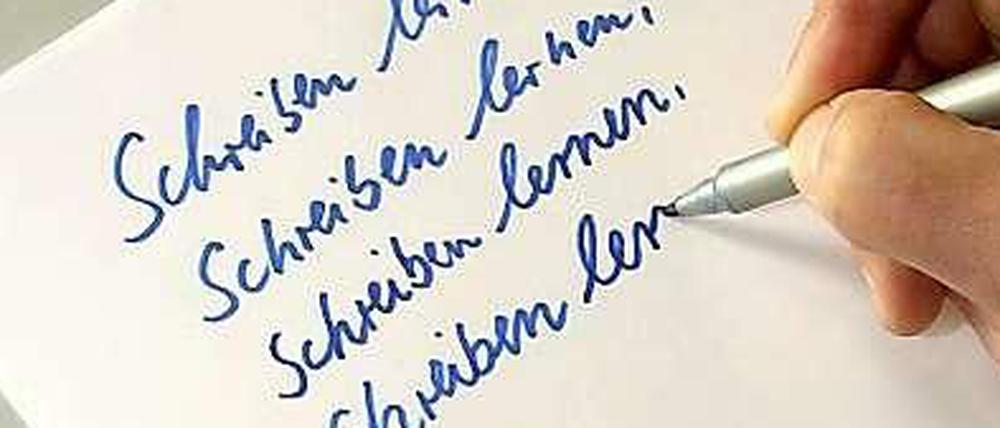 Schreiben ler
Schreiben lernen.
Schreiben lernen.
Schreiben ler